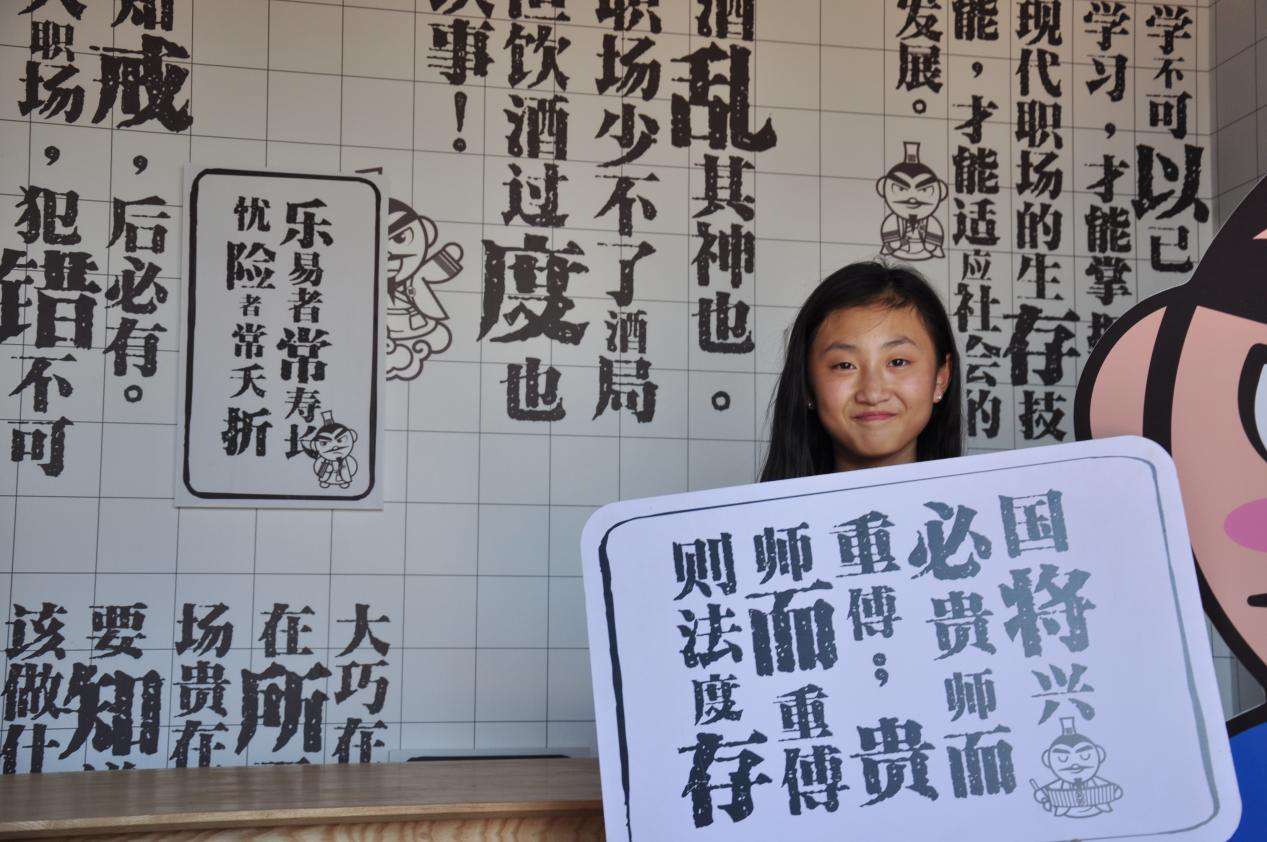 学不可以已
学习，才能掌
现代职场的生存技
能，才能适应社会的
发展。
酒乱其神也。
职场少不了酒局
但饮酒过度也
事！
知戒，后必有。
职场，犯错不可
乐易者常寿长
忧险者常夭折
大巧在
在所
场贵在
要知
该做什
国将兴
必贵师而
重傅；贵
师而重傅
则法度存